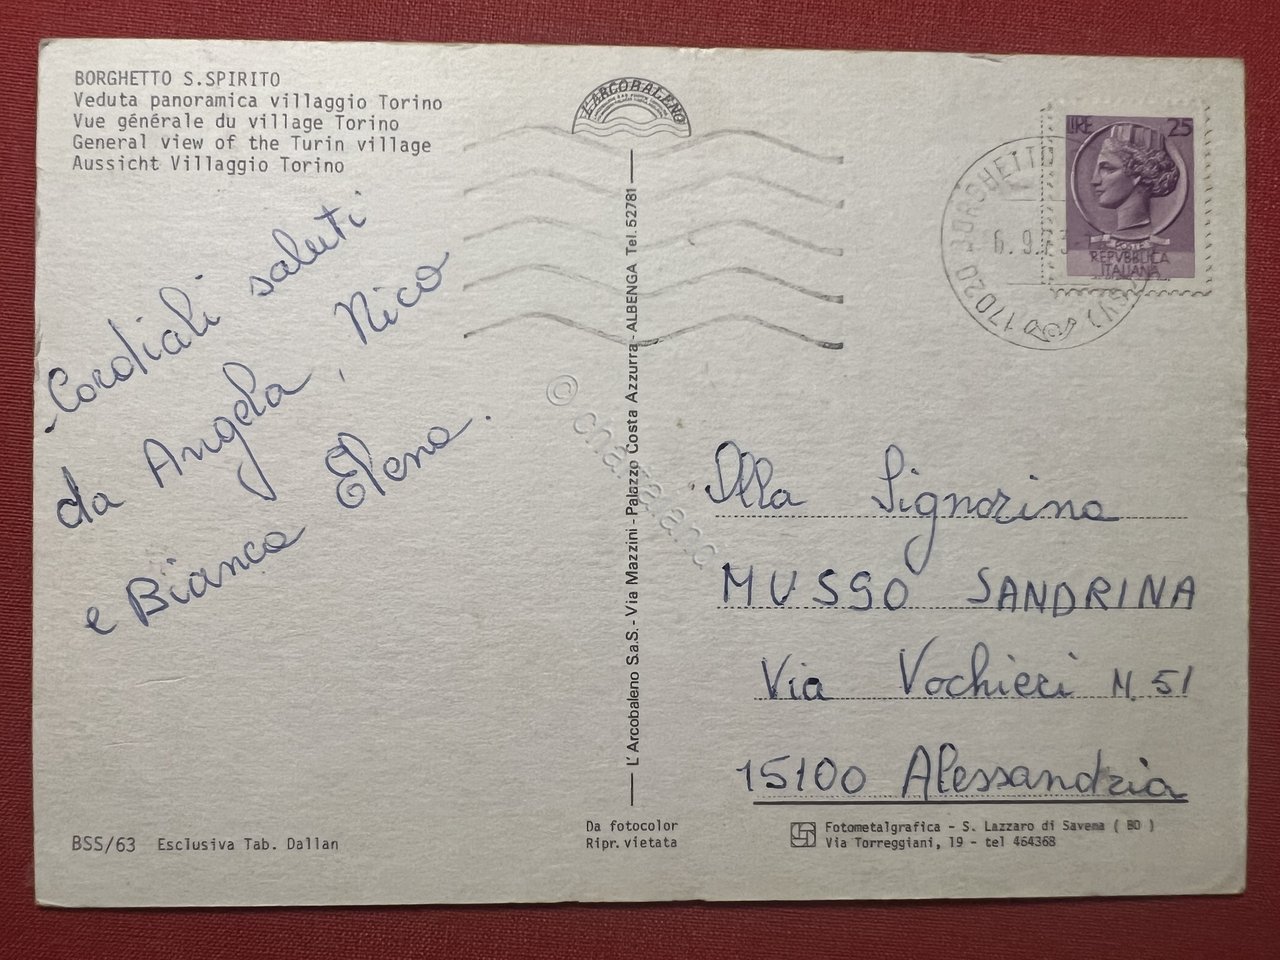 BORGHETTO S.SPIRITO
Veduta panoramica villaggio Torino
Vue générale du village Torino
General view of the Turin village
Aussicht Villaggio Torino
L'ARCOBALENO
LIRE 25
POSTE
REPVBBLICA
ITALIANA
17020 BORGHETTO
6.9.
(SV)
Cordiali saluti
da Angela, Nico
e Bianca Elena.
L'Arcobaleno S.a.S. - Via Mazzini - Palazzo Costa Azzurra - ALBENGA Tel. 52781
Alla Signorina
MUSSO SANDRINA
Via Vochieri N. 51
15100 Alessandria
BSS/63 Esclusiva Tab. Dallan
Da fotocolor
Ripr. vietata
Fotometalgrafica - S. Lazzaro di Savena ( BO )
Via Torreggiani, 19 - tel 464368